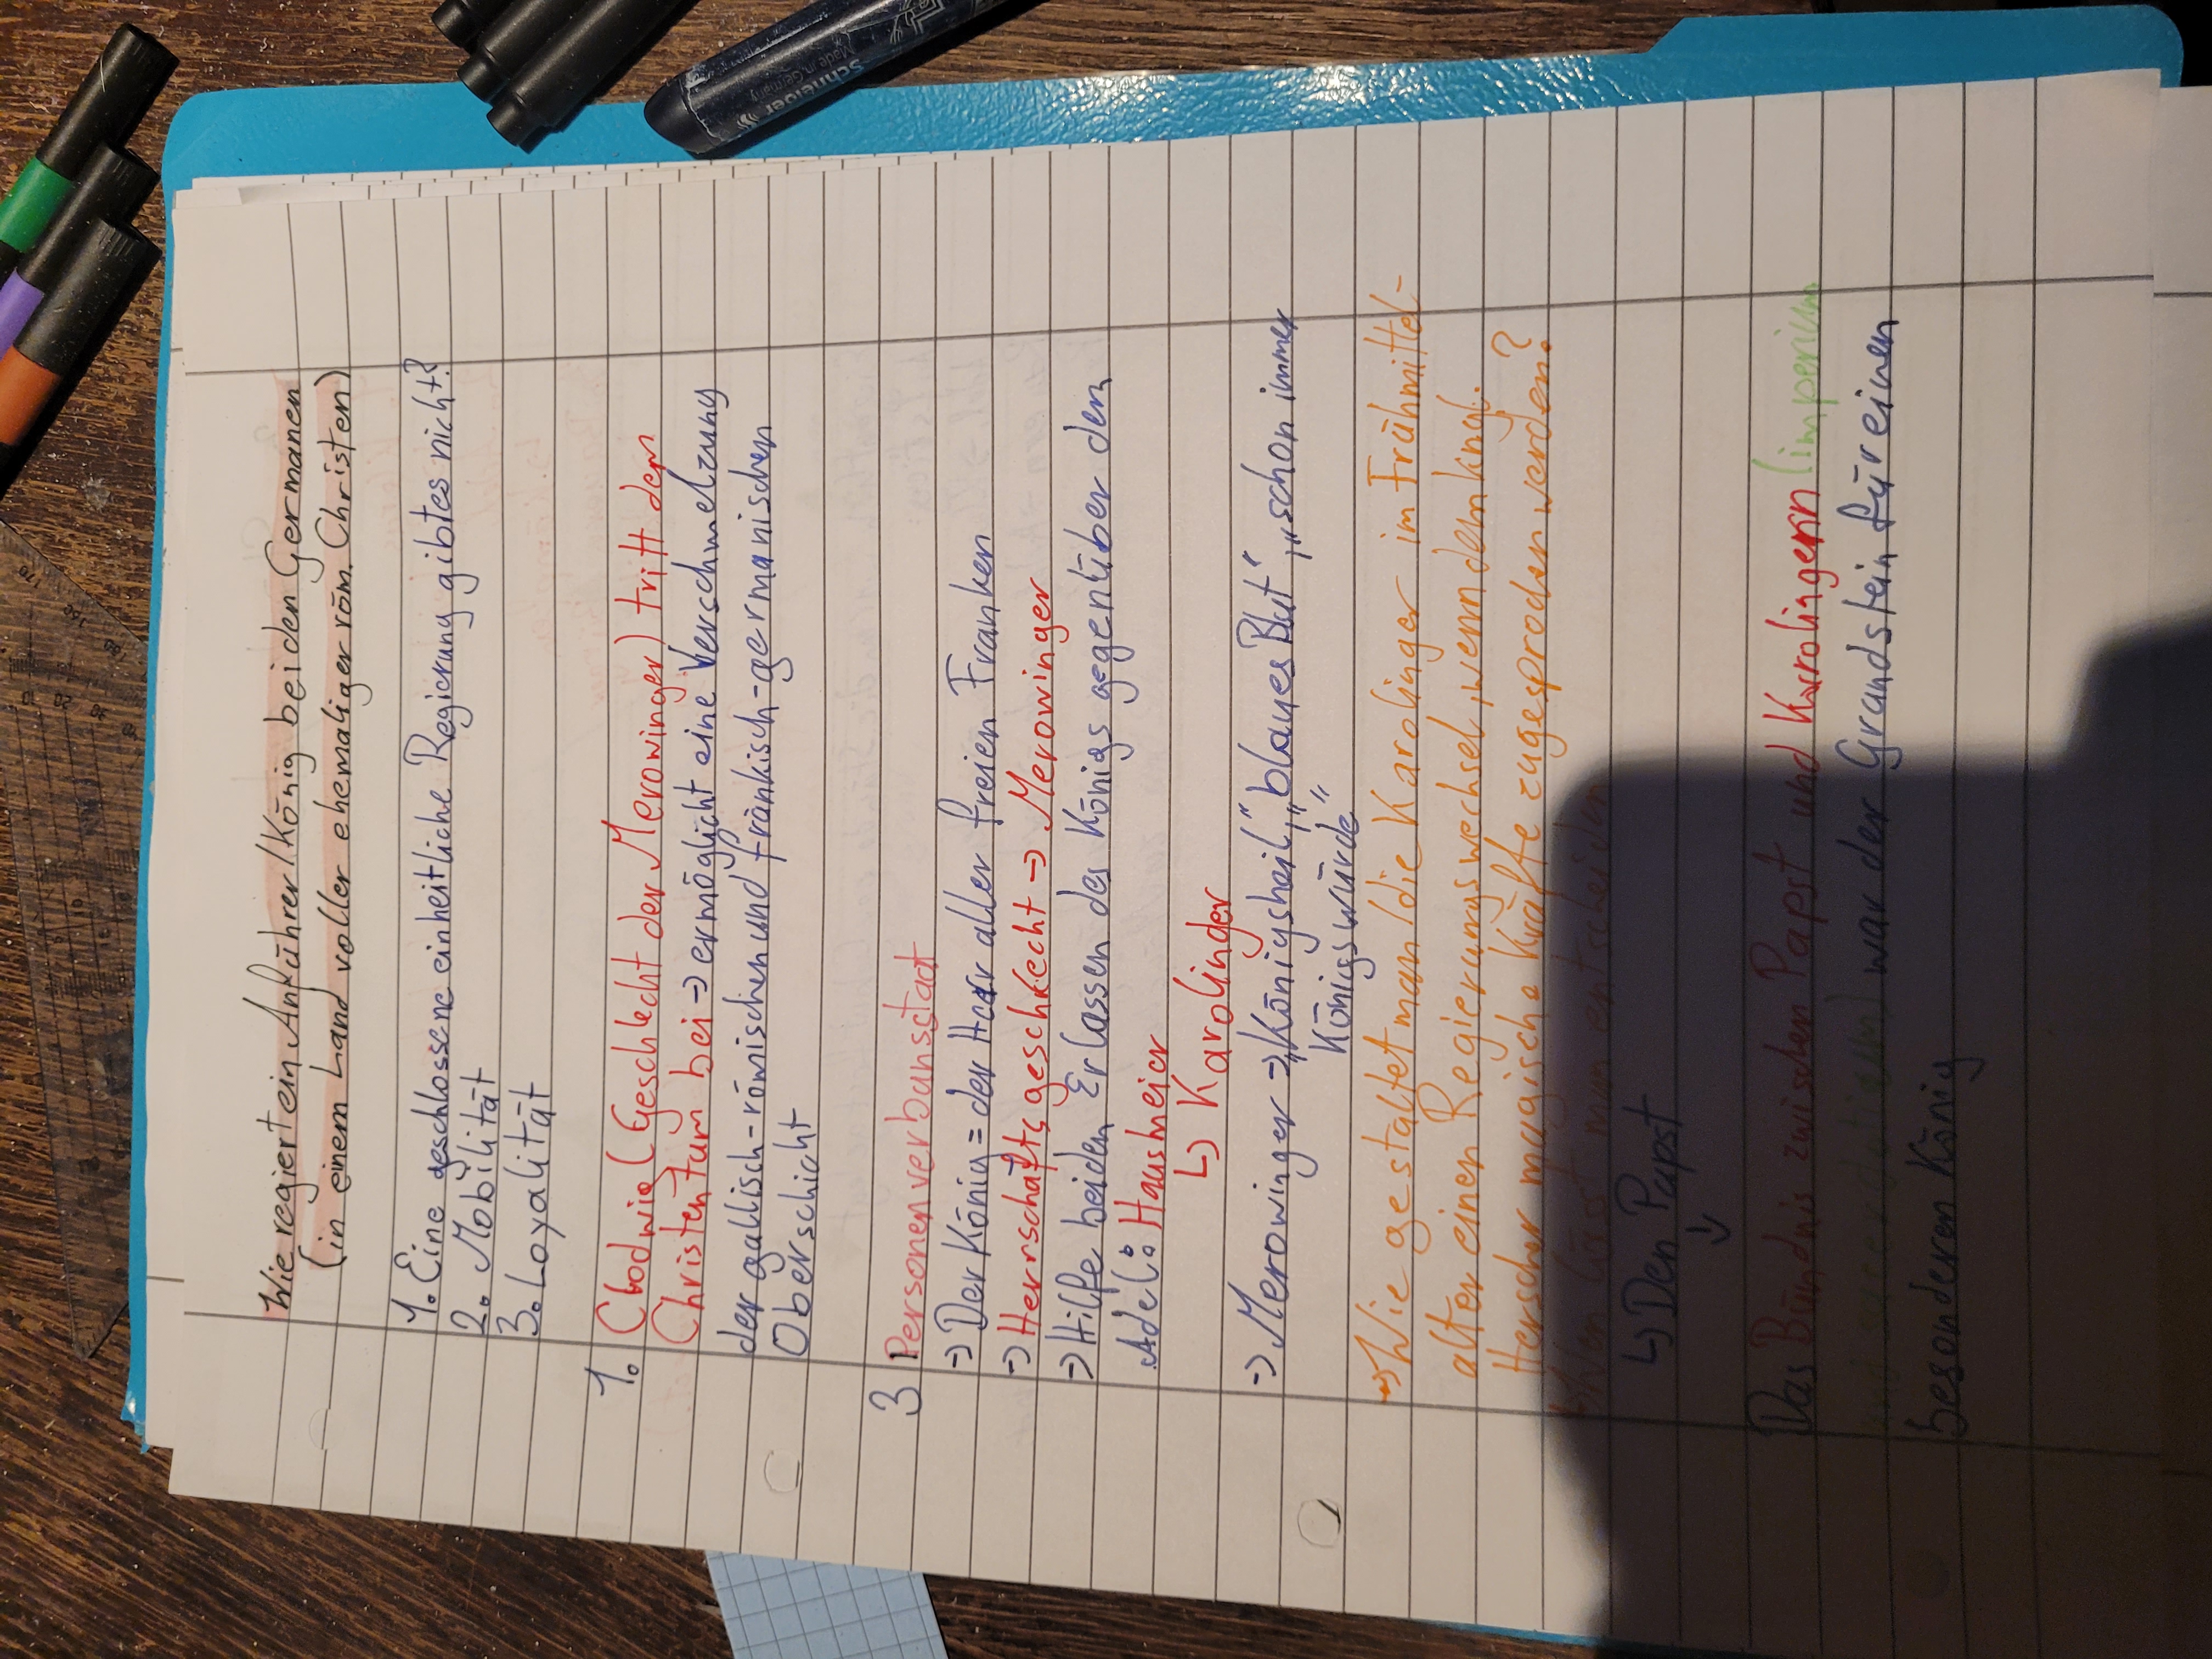 Wie regiert ein Anführer/König bei den Germanen
(in einem Land voller ehemaliger röm. Christen)
1. Eine geschlossene einheitliche Regierung gibt es nicht?
2. Mobilität
3. Loyalität
1. Chodwig (Geschlecht der Merowinger) tritt dem
Christentum bei → ermöglicht eine Verschmelzung
der gallisch-römischen und fränkisch-germanischen
Oberschicht
3 Personenverbansstaat
→ Der König = der Herr aller freien Franken
→ Herrschaftsgeschlecht → Merowinger
→ Hilfe bei den Erlassen des Königs gegenüber dem
Adel: Hausmeier
↳ Karolinger
→ Merowinger → „Königsheil", „blaues Blut", „schon immer
Königswürde"
→ Wie gestaltet man/die Karolinger im Frühmittel-
alter einen Regierungswechsel, wenn dem kngl.
Herscher magische Kräfte zugesprochen werden?
Wen lässt man entscheiden
↳ Den Papst
↓
Das Bündnis zwischen Papst und Karrolingern (imperium
und sacerdotium) war der Grundstein für einen
besonderen König
schneider
Made in Germany